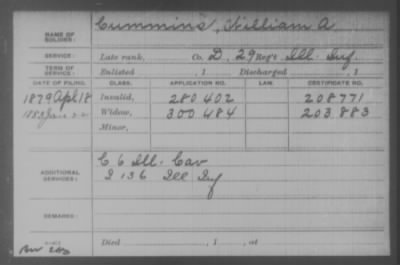 Cummins, William A
NAME OF SOLDIER:
SERVICE: Late rank, Co. D, 29 Reg't Ill. Inf.
TERM OF SERVICE: Enlisted , 1 Discharged , 1
DATE OF FILING. CLASS. APPLICATION NO. LAW. CERTIFICATE NO.
1879 Apl 18 Invalid, 280402 208771
Jan 22 Widow, 300484 203.883
Minor,
ADDITIONAL SERVICES: C 6 Ill. Cav
136 Ill Inf
REMARKS:
Died , 1 , at